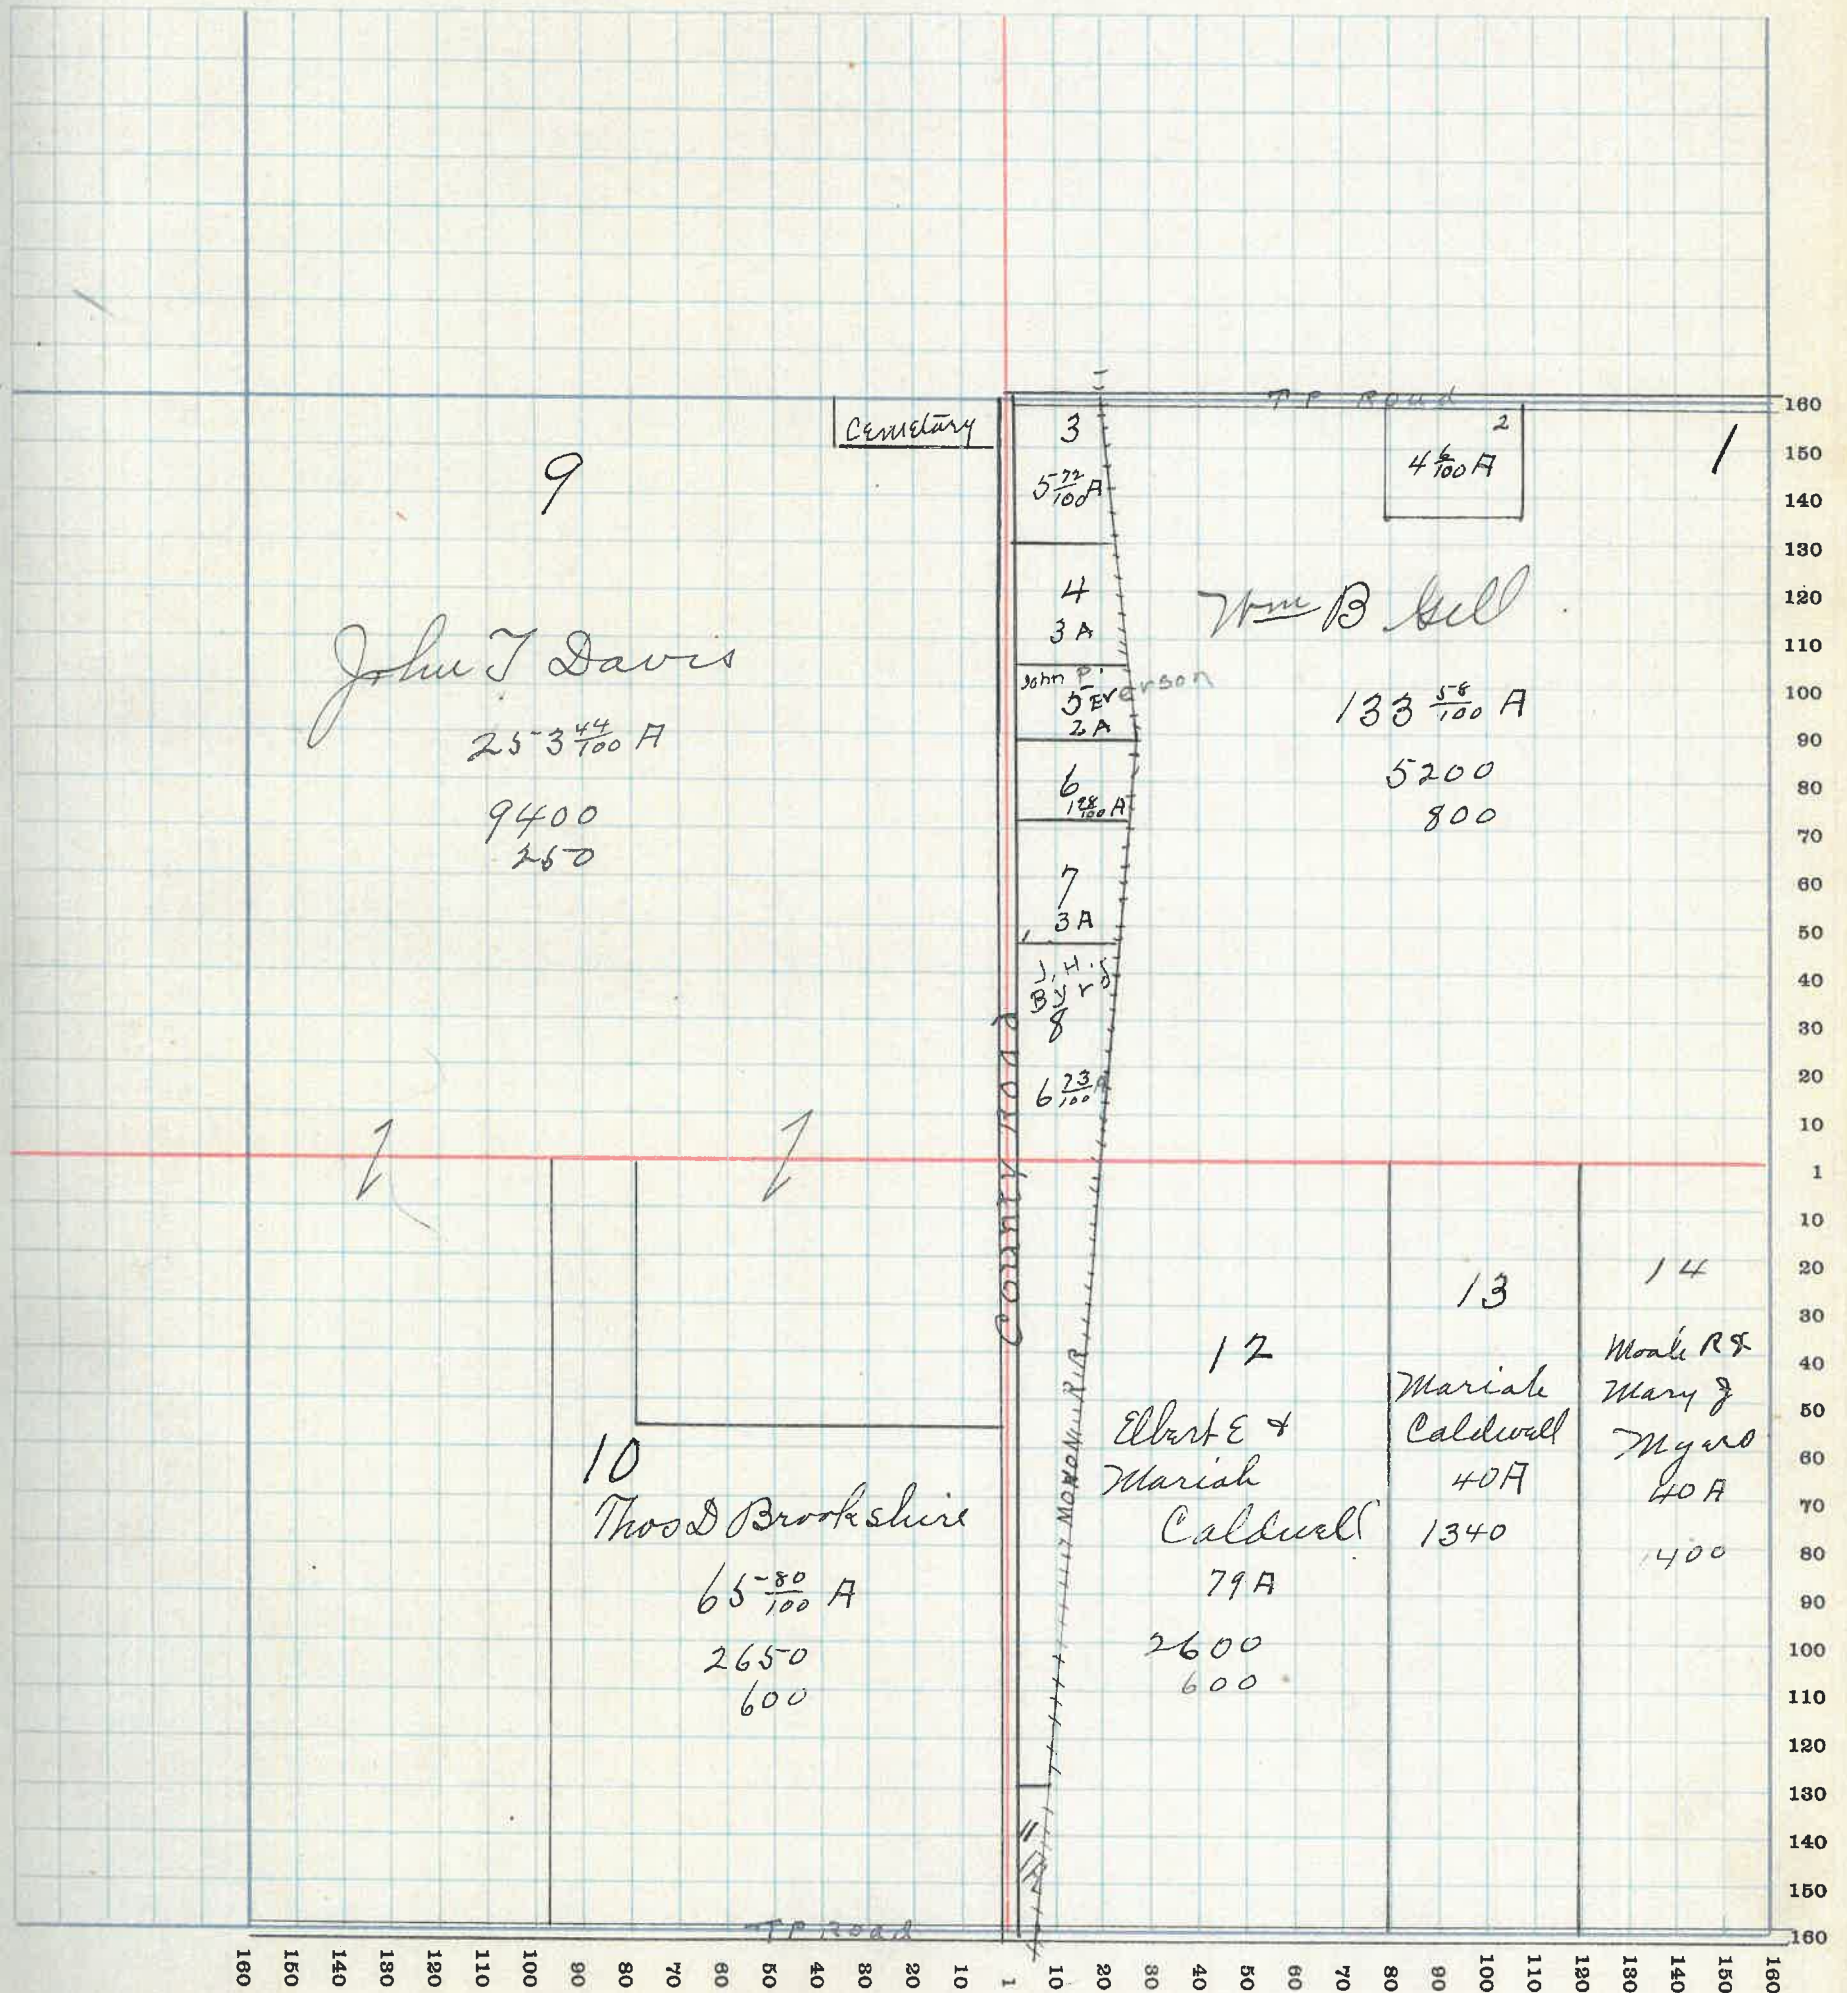 TP Road
Cemetary
9
John T Davis
253 44/100 A
9400
250
3
5 72/100 A
4
3 A
John P.
5 Everson
2 A
6
1 98/100 A
7
3 A
J. H.
Byrs
8
6 73/100 A
2
4 6/100 A
1
Wm B Gill
133 58/100 A
5200
800
County Road
MONON R.R.
10
Thos D Brookshire
65 80/100 A
2650
600
11
12
Elbert E &
Mariah
Caldwell
79 A
2600
600
13
Mariah
Caldwell
40 A
1340
14
R &
Mary J
Myers
40 A
1400
TP Road
160
150
140
130
120
110
100
90
80
70
60
50
40
30
20
10
1
10
20
30
40
50
60
70
80
90
100
110
120
130
140
150
160
160 150 140 130 120 110 100 90 80 70 60 50 40 30 20 10 1 10 20 30 40 50 60 70 80 90 100 110 120 130 140 150 160